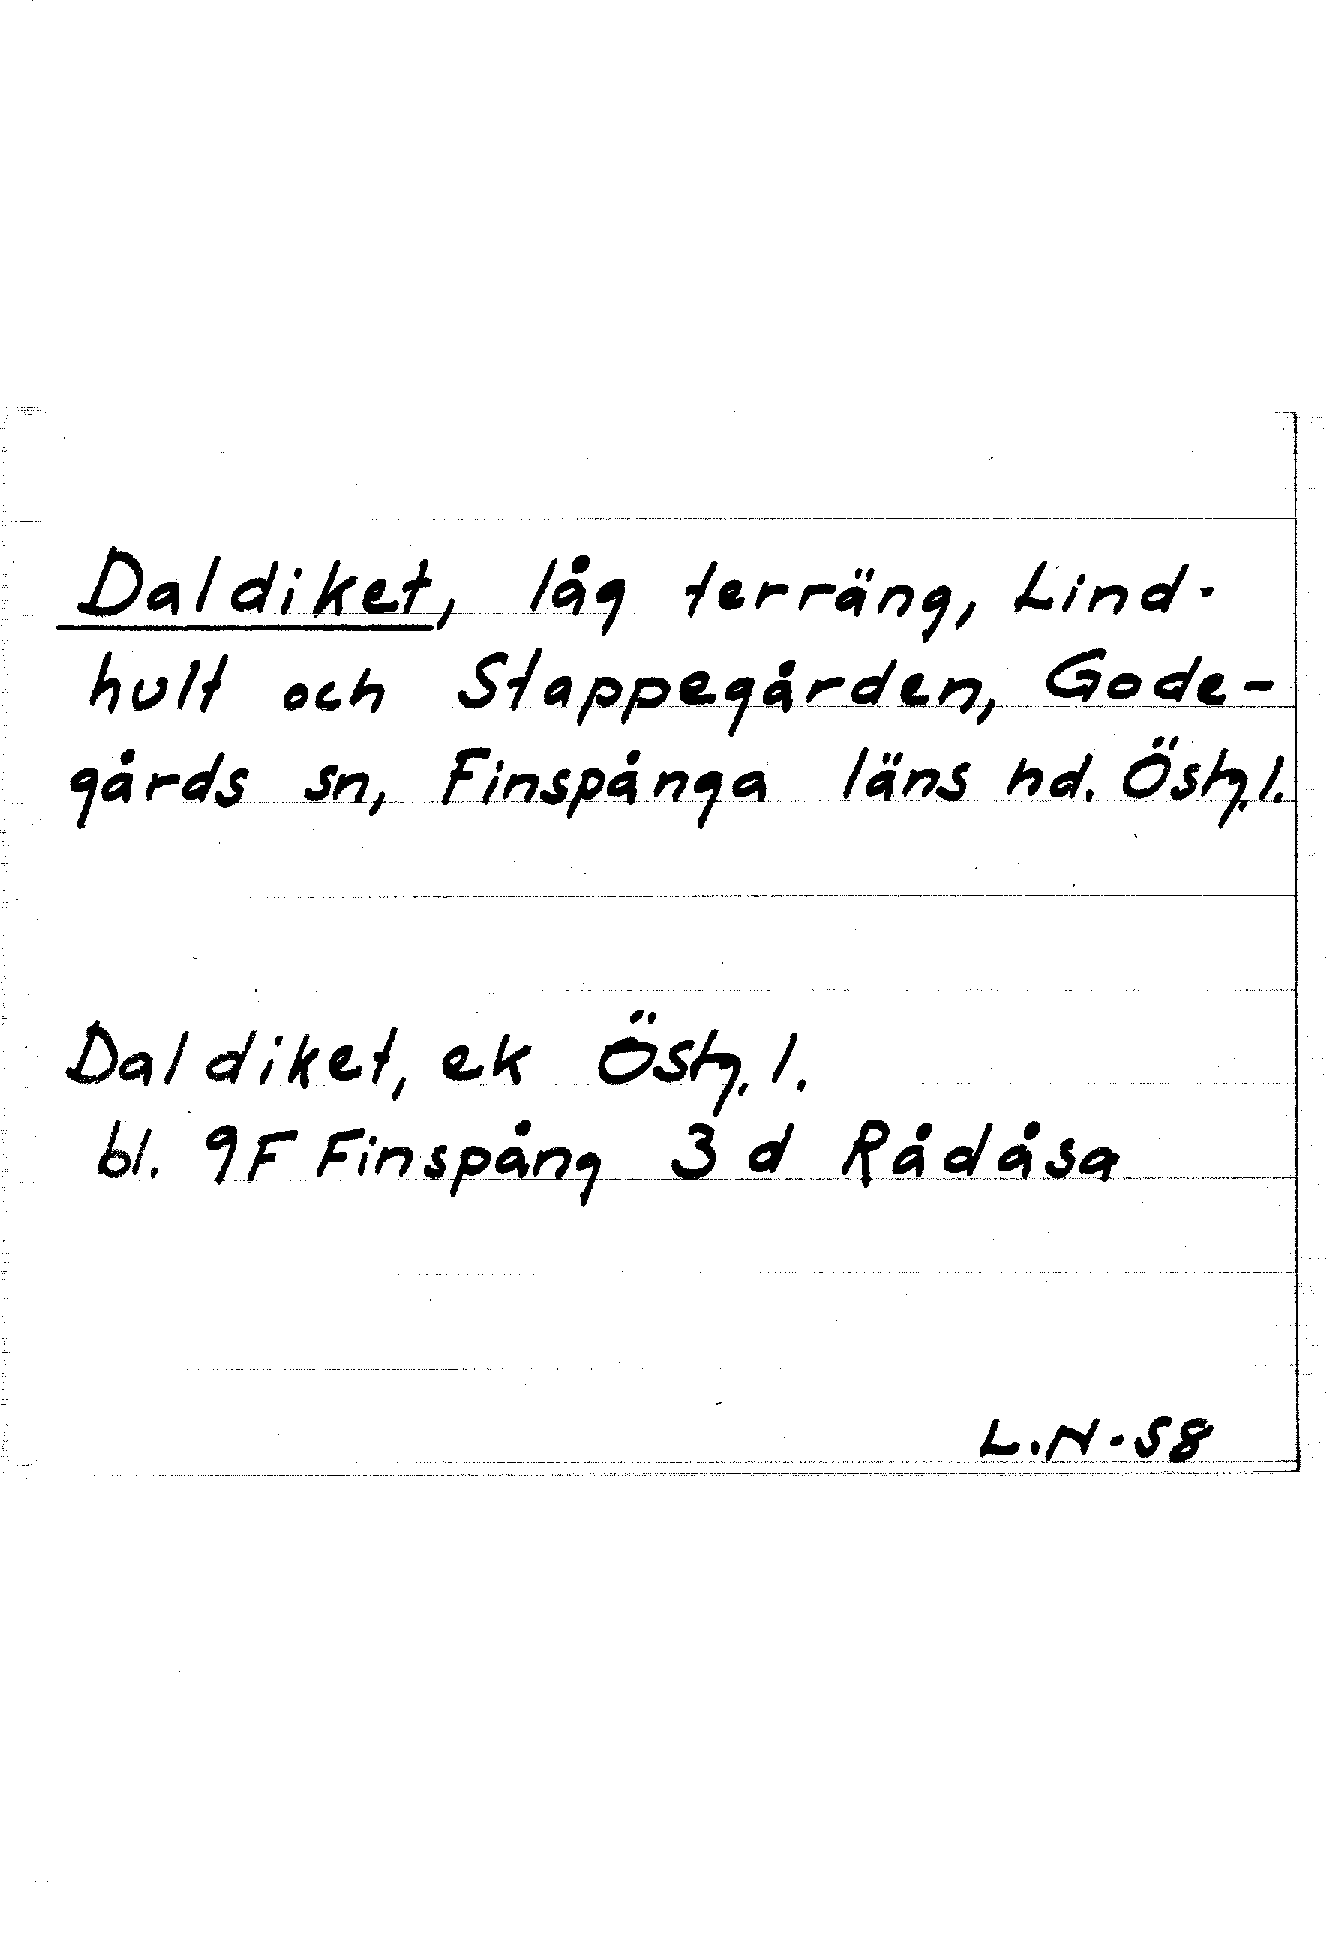 Daldiket, låg terräng, Lind-
hult och Stappegården, Gode-
gårds sn, Finspånga läns hd. Östg.l.
Daldiket, ek Östg.l.
bl. 9F Finspång 3 d Rådåsa
L.N.58